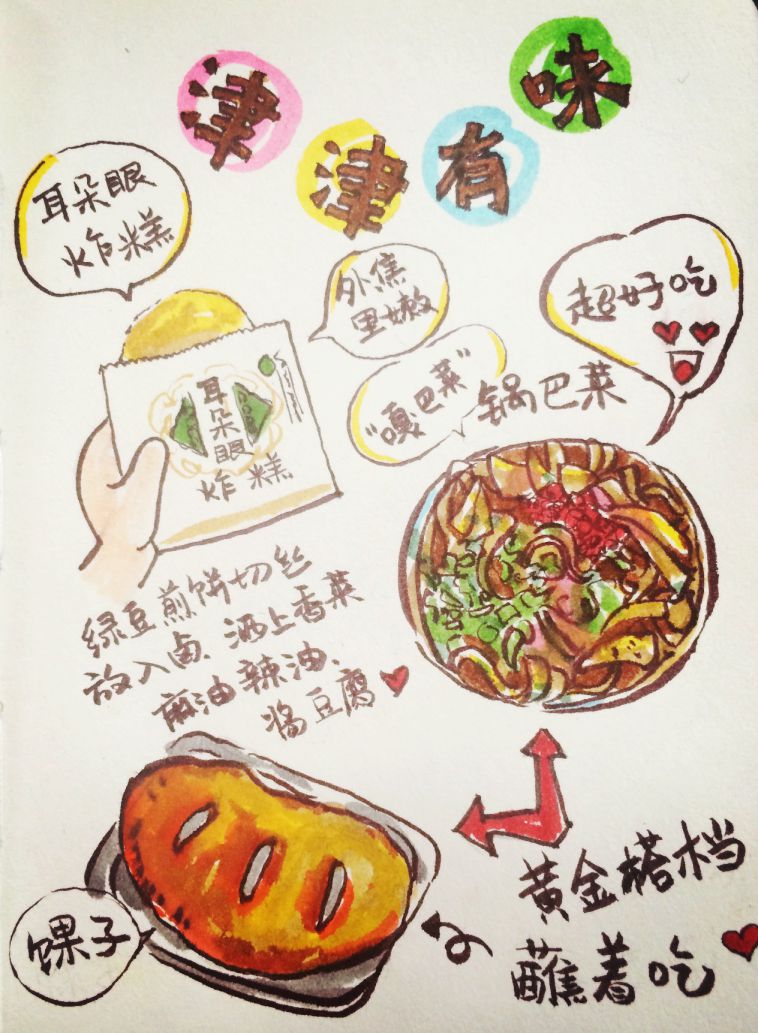 津津有味
耳朵眼
炸糕
外焦
里嫩
超好吃
"嘎巴菜"
锅巴菜
耳朵眼
炸糕
绿豆煎饼切丝
放入卤、洒上香菜
麻油辣油、
酱豆腐
馃子
黄金搭档
蘸着吃